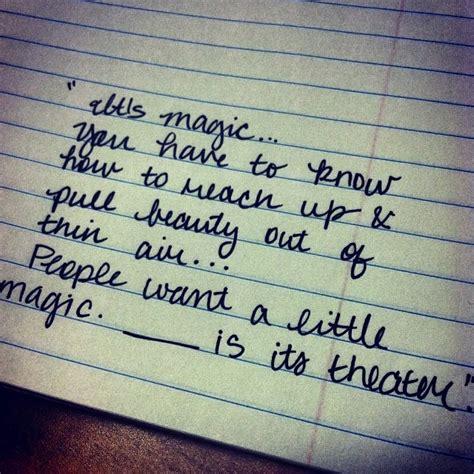 " magic...
you have to know
how to reach up &
pull beauty out of
thin air...
People want a little
magic. ____ is its theater"